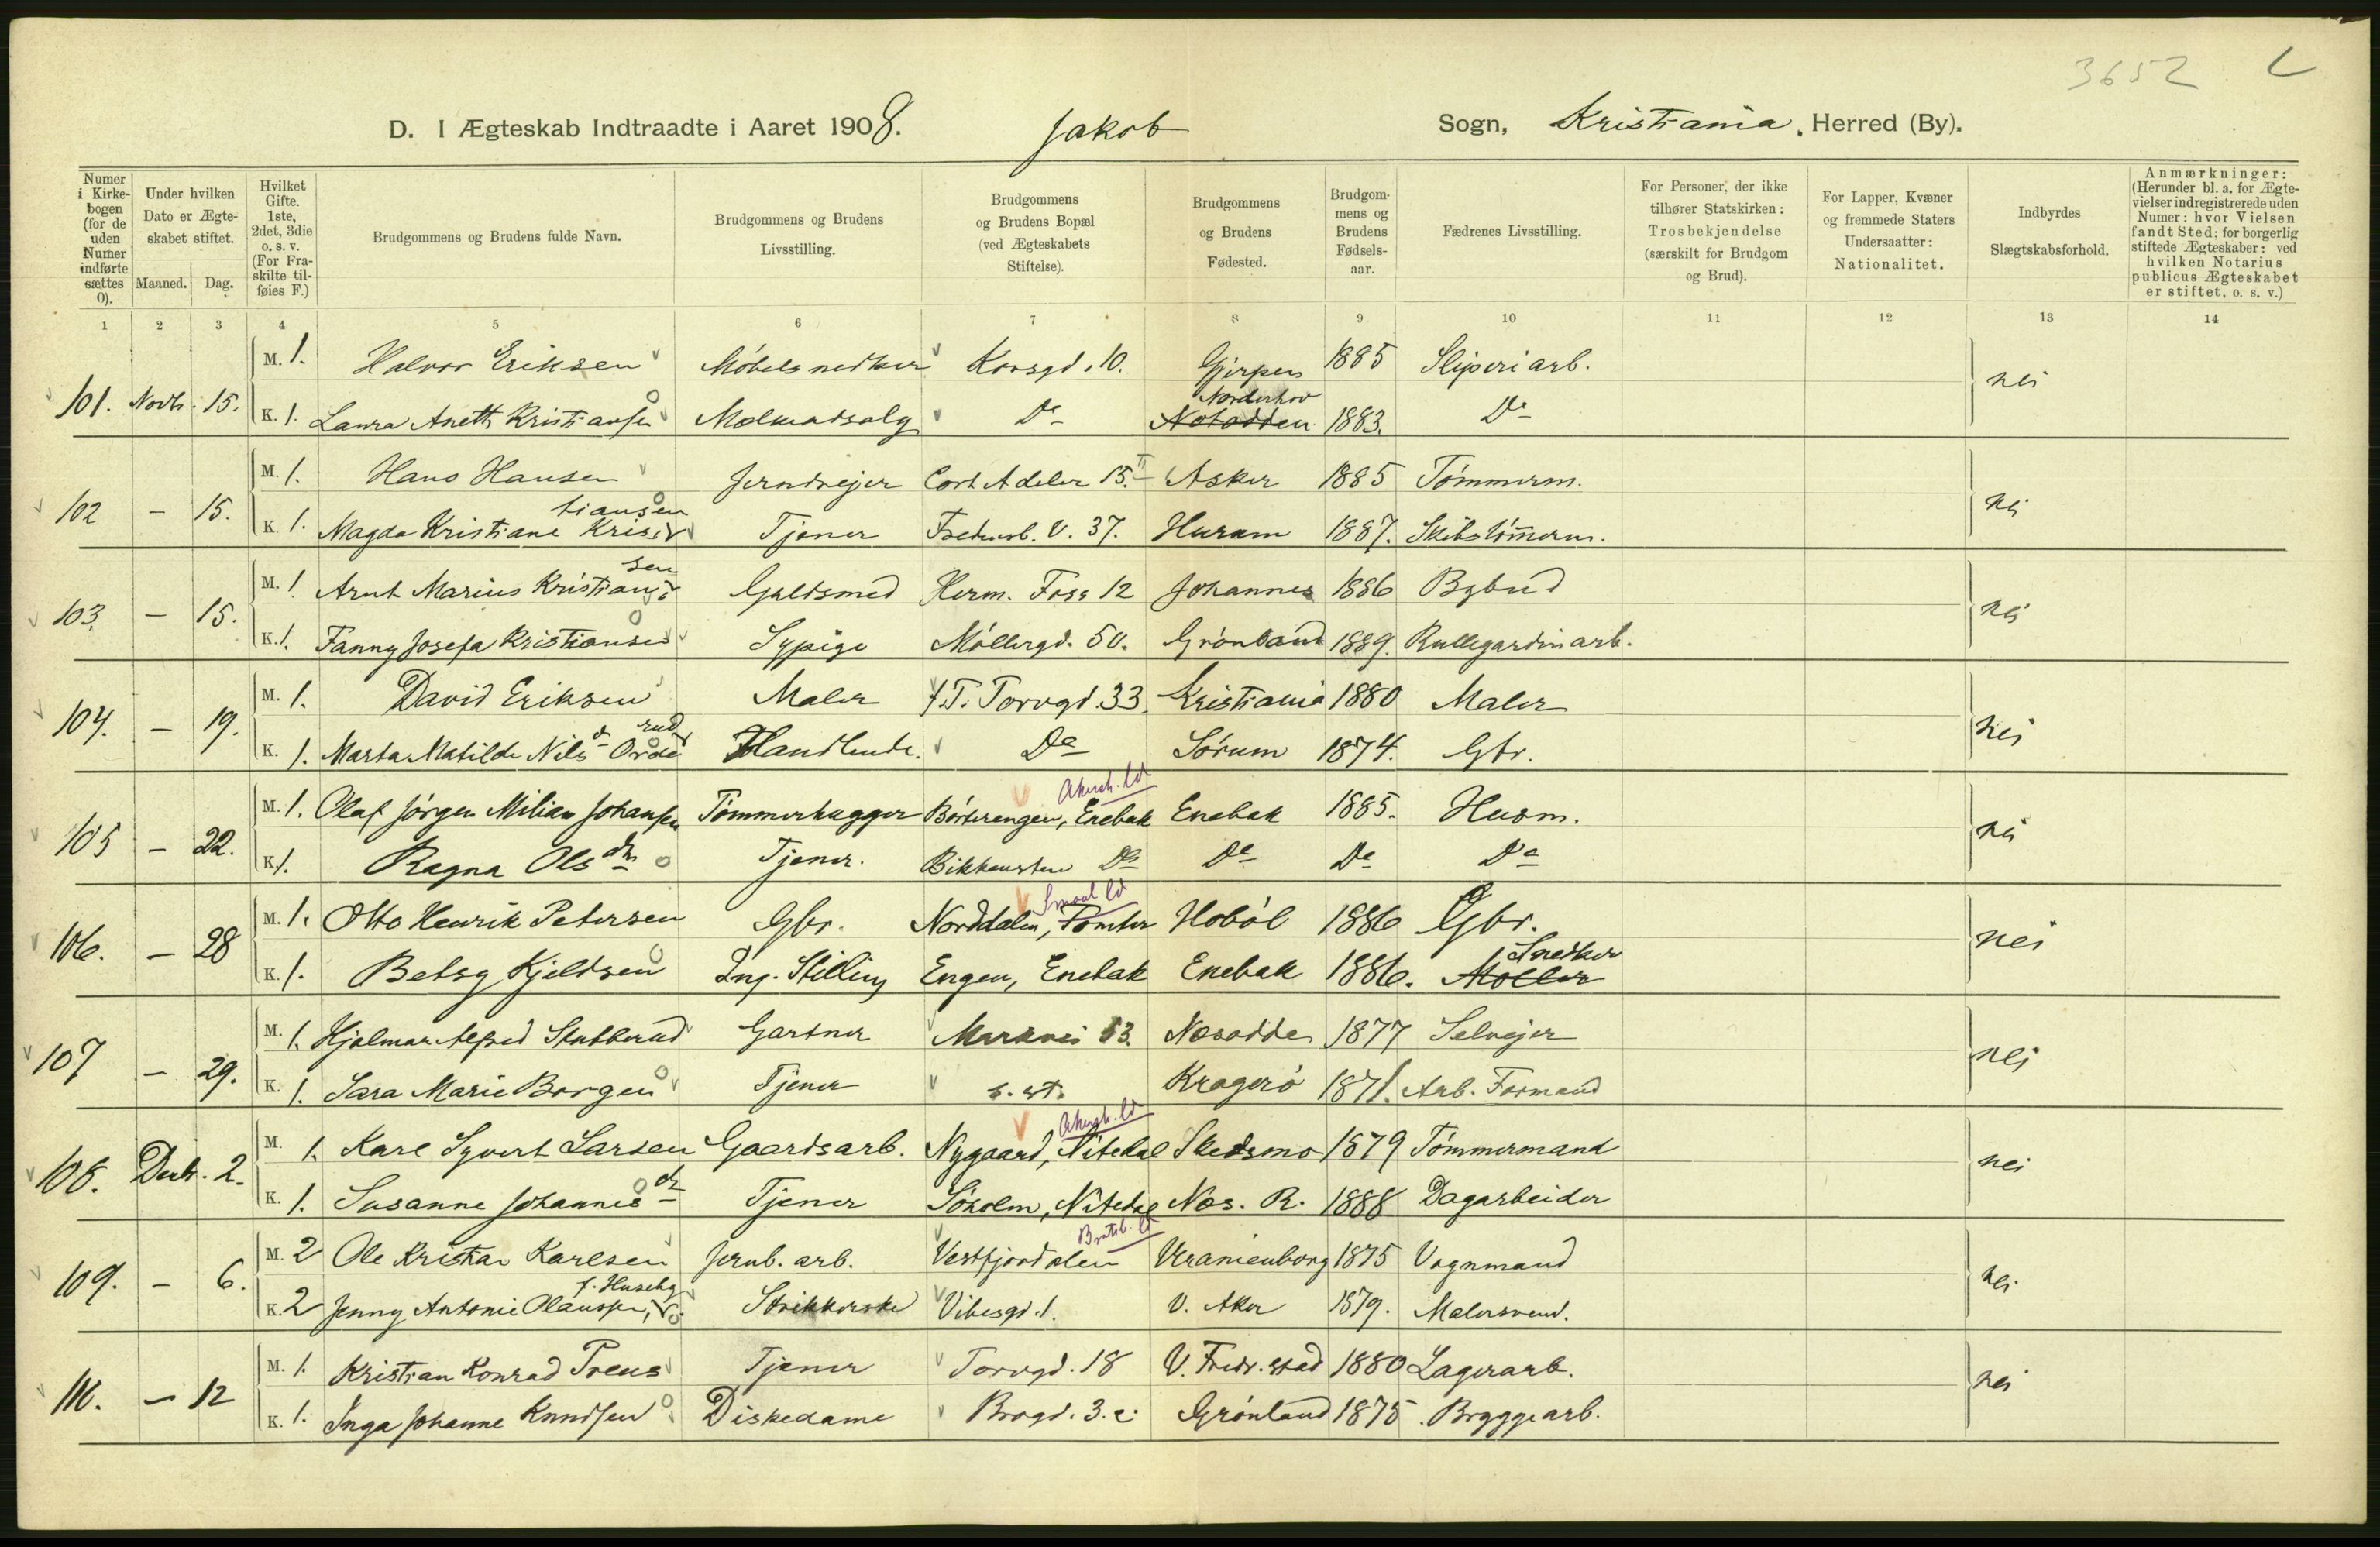 3652
D. I Ægteskab Indtraadte i Aaret 1908. Jakob Sogn, Kristiania, Herred (By).
Numer i Kirkebogen (for de uden Numer indførte sættes 0).
Under hvilken Dato er Ægteskabet stiftet.
Maaned. Dag.
Hvilket Gifte. 1ste, 2det, 3die o. s. v. (For Fraskilte tilføies F.)
Brudgommens og Brudens fulde Navn.
Brudgommens og Brudens Livsstilling.
Brudgommens og Brudens Bopæl (ved Ægteskabets Stiftelse).
Brudgommens og Brudens Fødested.
Brudgommens og Brudens Fødselsaar.
Fædrenes Livsstilling.
For Personer, der ikke tilhører Statskirken: Trosbekjendelse (særskilt for Brudgom og Brud).
For Lapper, Kvæner og fremmede Staters Undersaatter: Nationalitet.
Indbyrdes Slægtskabsforhold.
Anmærkninger: (Herunder bl. a. for Ægtevielser indregistrerede uden Numer: hvor Vielsen fandt Sted; for borgerlig stiftede Ægteskaber: ved hvilken Notarius publicus Ægteskabet er stiftet, o. s. v.)
1 2 3 4 5 6 7 8 9 10 11 12 13 14
M. 1. Halvor Eriksen Møbelsnedker Korsgd. 10. Gjerpen 1885 Sliperiarb.
101. Novb. 15. nei
Norderhov
K. 1. Laura Aneth Kristiansen Melkeudsalg Do Notodden 1883. Do
M. 1. Hans Hansen Jerndrejer Cort Adeler 15. II Asker 1885 Tømmerm.
102 - 15. nei
tiansen
K. 1. Magda Kristiane Kris Tjener Fredensb. V. 37. Hurum 1887. Skibstømmerm.
sen
M. 1. Arnt Marius Kristian Guldsmed Herm. Foss 12 Johannes 1886 Bybud
103. - 15. nei
K. 1. Fanny Josefa Kristiansen Sypige Møllergd. 50. Grønland 1889. Rullegardinarb.
M. 1. David Eriksen Maler f.T. Torvgd. 33. Kristiania 1880 Maler
104. - 19. nei
rud
K. 1. Marta Matilde Nilsd. Orde Handlende. Do Sørum 1874. Gbr.
Akersh. ld
M. 1. Olaf Jørgen Milian Johansen Tømmerhugger Børterengen, Enebak Enebak 1885. Husm.
105 - 22. nei
K. 1. Ragna Olsdtr Tjener. Bikkensten Do Do Do Do
Smaal. ld
M. 1. Otto Henrik Petersen Gbr. Norddalen, Tomter Hobøl 1886 Gbr.
106. - 28 nei
Snedker
K. 1. Betsy Kjeldsen Ing. Stilling Engen, Enebak Enebak 1886. Møller
M. 1. Hjalmar Alfred Stubberud Gartner Markvei 53. Nesodden 1877 Selvejer
107 - 29. nei
K. 1. Sara Marie Borgen Tjener s. st. Kragerø 1871. Arb. Formand
Akersh. ld
M. 1. Karl Syvert Larsen Gaardsarb. Nygaard, Nitedal Skedsmo 1879 Tømmermand
108. Decb. 2. nei
K. 1. Susanne Johannesd. Tjener Søholm, Nitedal Nes. R. 1888 Dagarbeider
Bratsb. ld
M. 2 Ole Kristian Karlsen Jernb. arb. Vestfjorddalen Uranienborg 1875 Vognmand
109. - 6. nei
f. Huseby
K. 2 Jenny Antonie Olaussen, Strikkerske Vibesgd. 1. V. Aker 1879. Malersvend.
M. 1. Kristian Konrad Preus Tjener Torvgd. 18 V. Fredr.stad 1880 Lagerarb.
110. - 12 nei
K. 1. Inga Johanne Knudsen Diskedame Brogd. 3. c. Grønland 1875. Bryggearb.